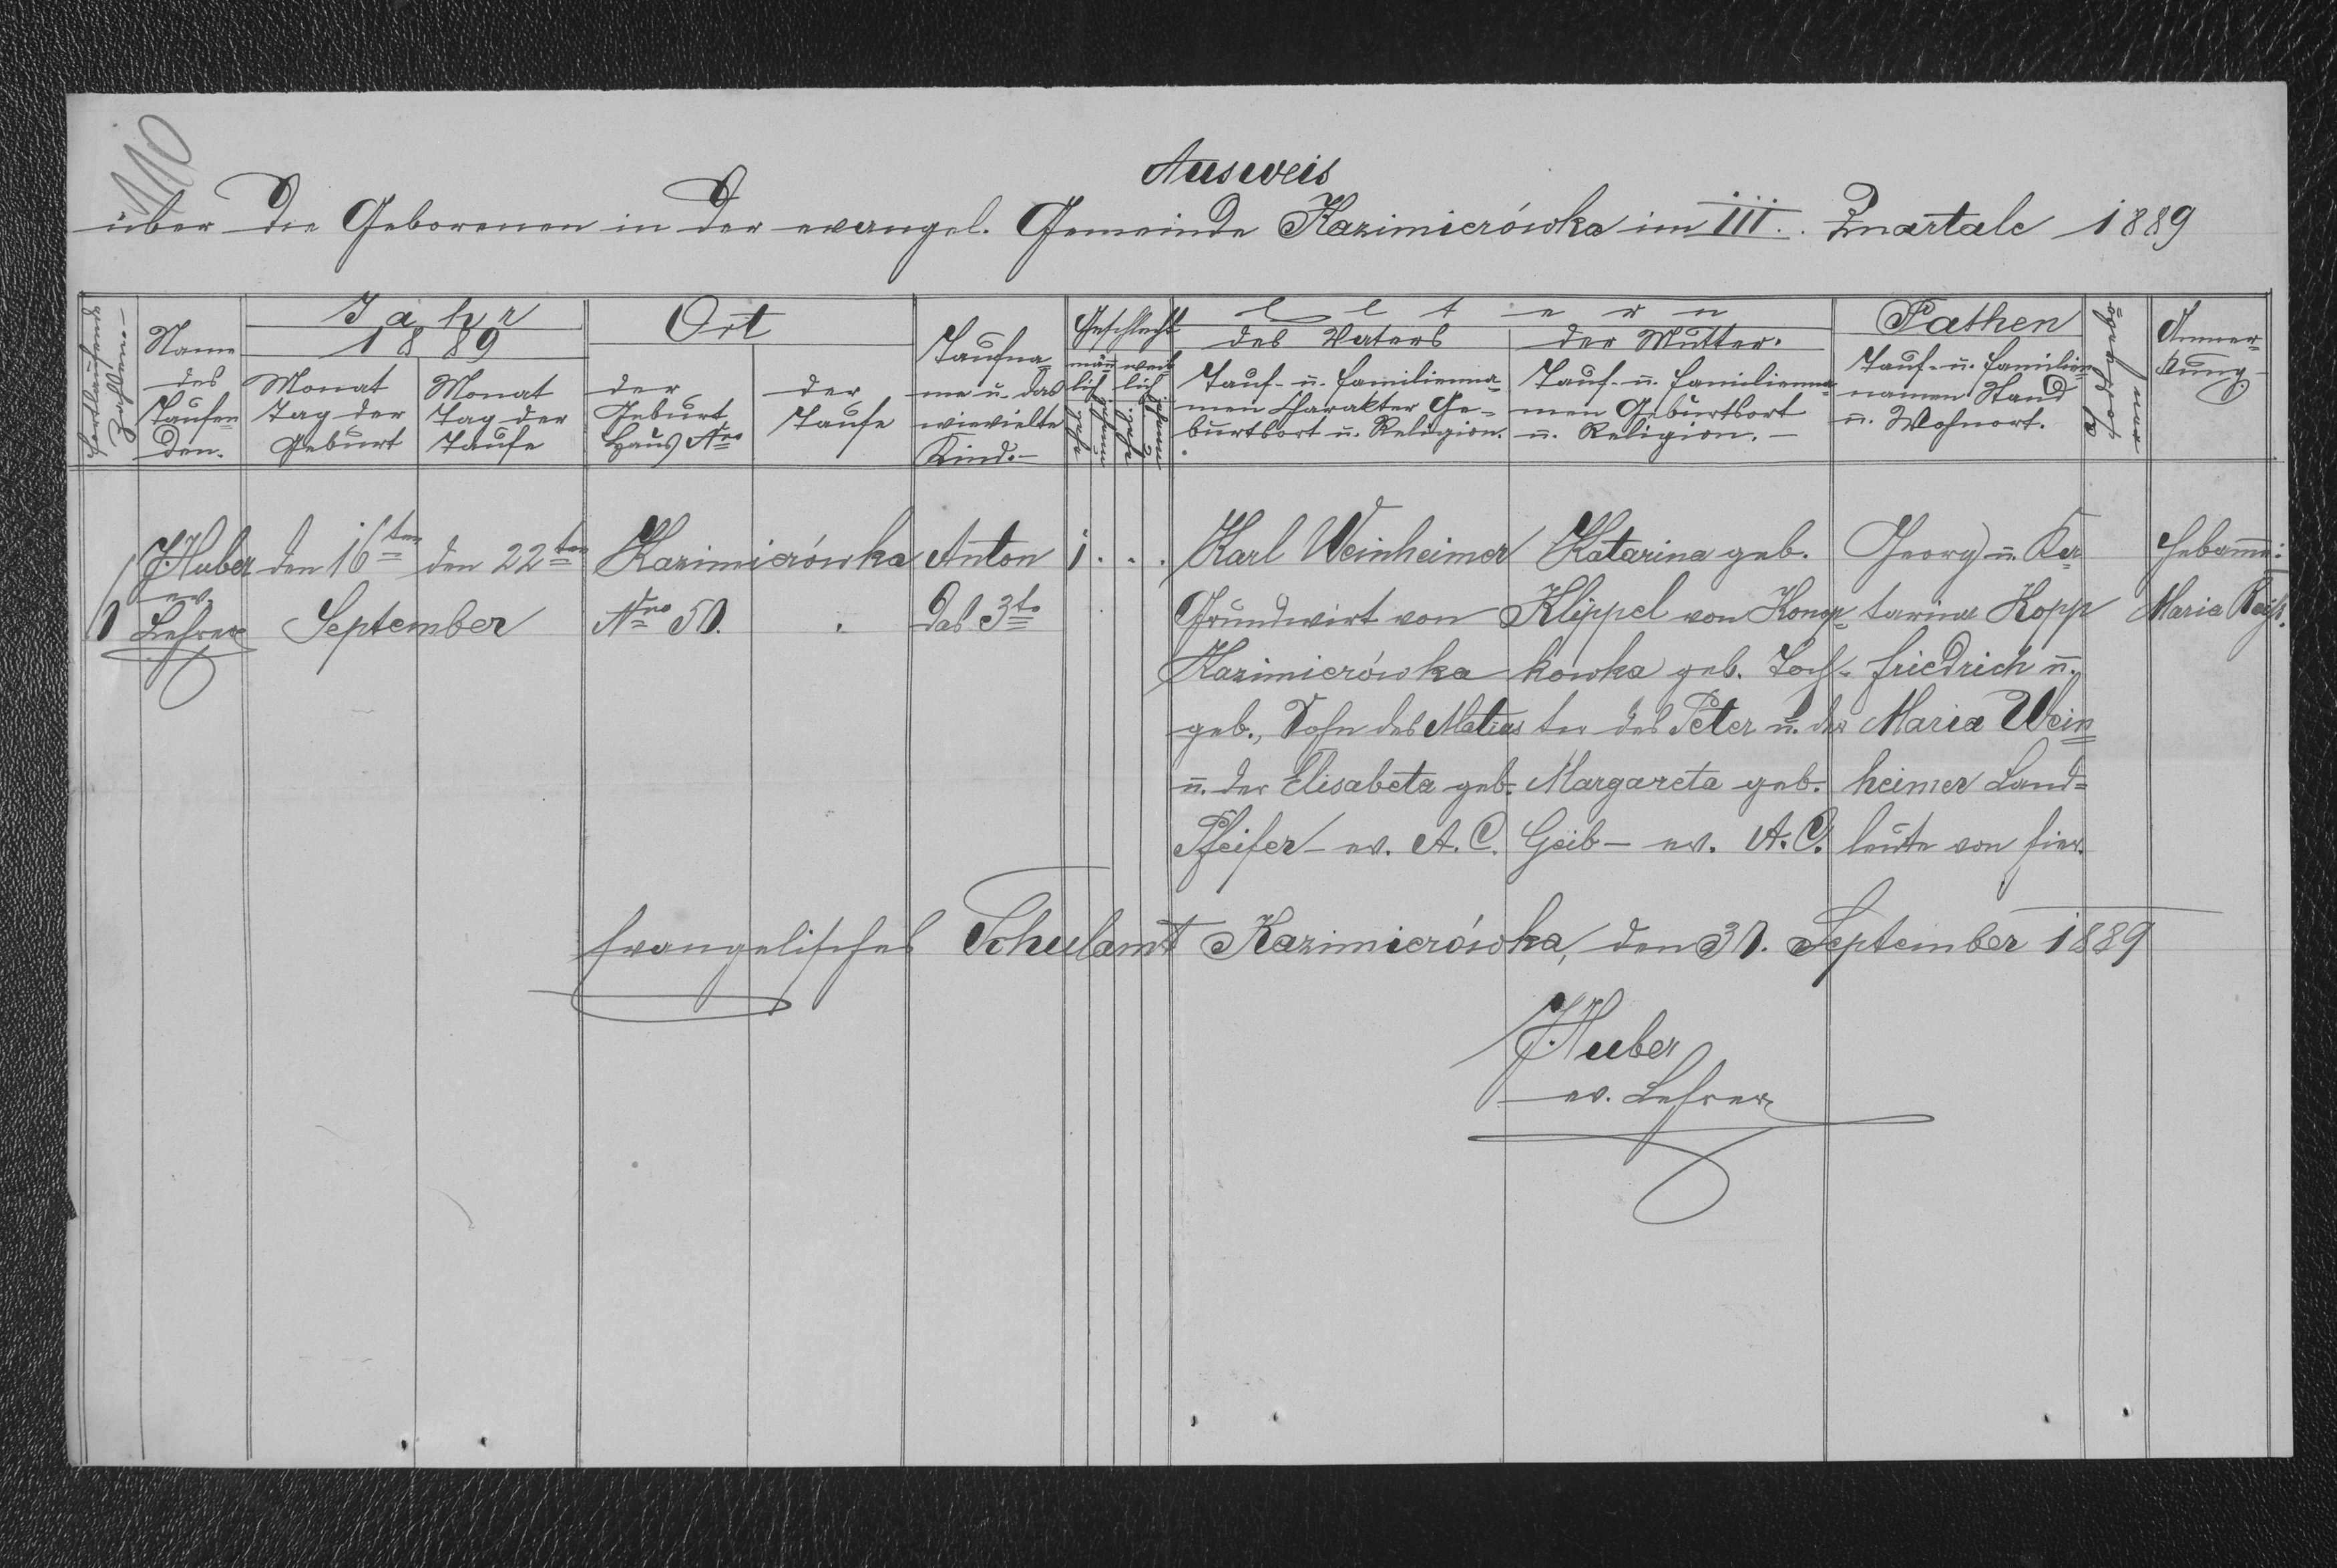 110
Ausweis
über die Geborenen in der evangel. Gemeinde Kazimierówka im III. Quartale 1889
Fortlaufende Zahlen
Name des Taufenden.
Jahr 1889
Monat Tag der Geburt
Monat Tag der Taufe
Ort
der Geburt Haus Nro
der Taufe
Taufname u. das wievielte Kind.
Geschlecht
männlich
weiblich
Eltern
des Vaters
der Mutter.
Tauf- u. Familiennamen Charakter Geburtsort u. Religion.
Tauf- u. Familiennamen Geburtsort u. Religion.
Pathen
Tauf- u. Familiennamen Stand u. Wohnort.
Anmerkung
1
J. Huber ev. Lehrer
den 16ten September
den 22ten
Kazimierówka
Nro 50.
Anton
das 3te
1 . . .
Karl Weinheimer
Grundwirt von
Kazimierówka
geb., Sohn des Matias
u. der Elisabeta geb.
Pfeifer - ev. A. C.
Katarina geb.
Klippel von Konop-
kowka geb. Toch-
ter des Peter u. der
Margareta geb.
Geib - ev. A. C.
Georg u. Ka-
tarina Kopp
Friedrich u.
Maria Wein=
heimer Land=
leute von hier.
Hebamme:
Maria
Evangelisches Schulamt Kazimierówka, den 30. September 1889
J. Huber
ev. Lehrer